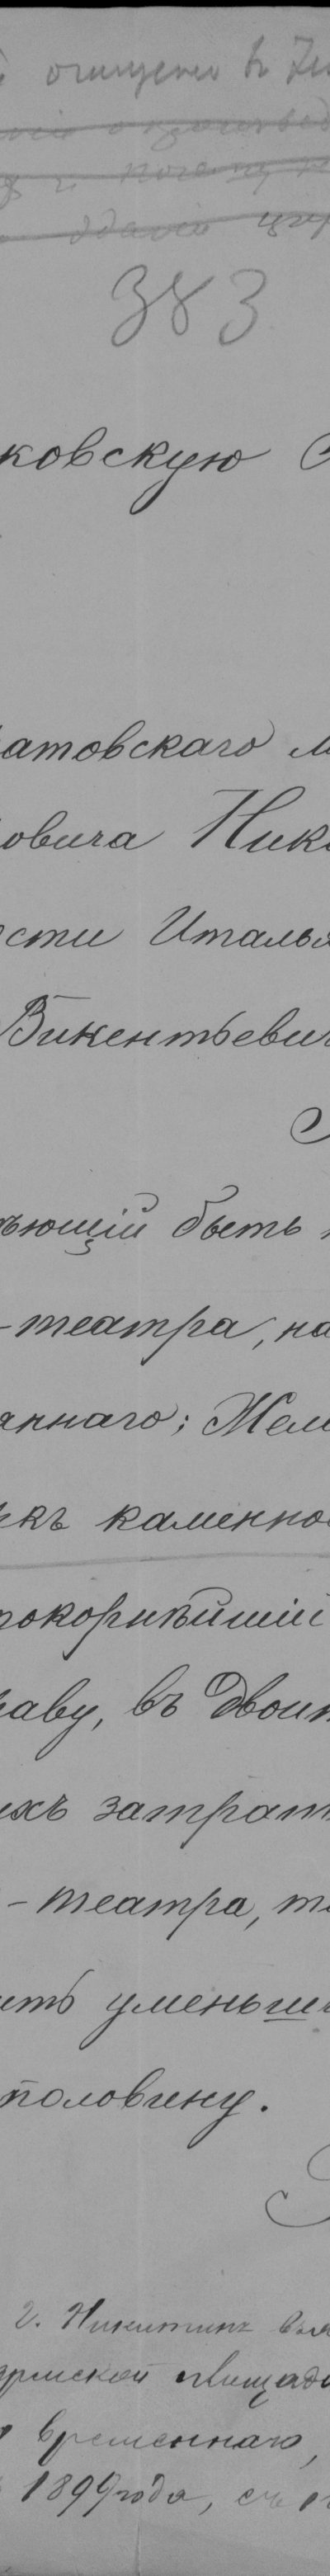 очищено въ
383
ковскую
атовскаго м
овича Ник
сти Италья
Викентьевич
ѣющій быть
-театра, на
аннаго; Жел
къ каменно
покорнѣйшій
раву, въ двои
ихъ затрат
-театра, т
ить уменьши
половину.
г. Никитинъ
армской площади
временнаго,
1899 года, съ